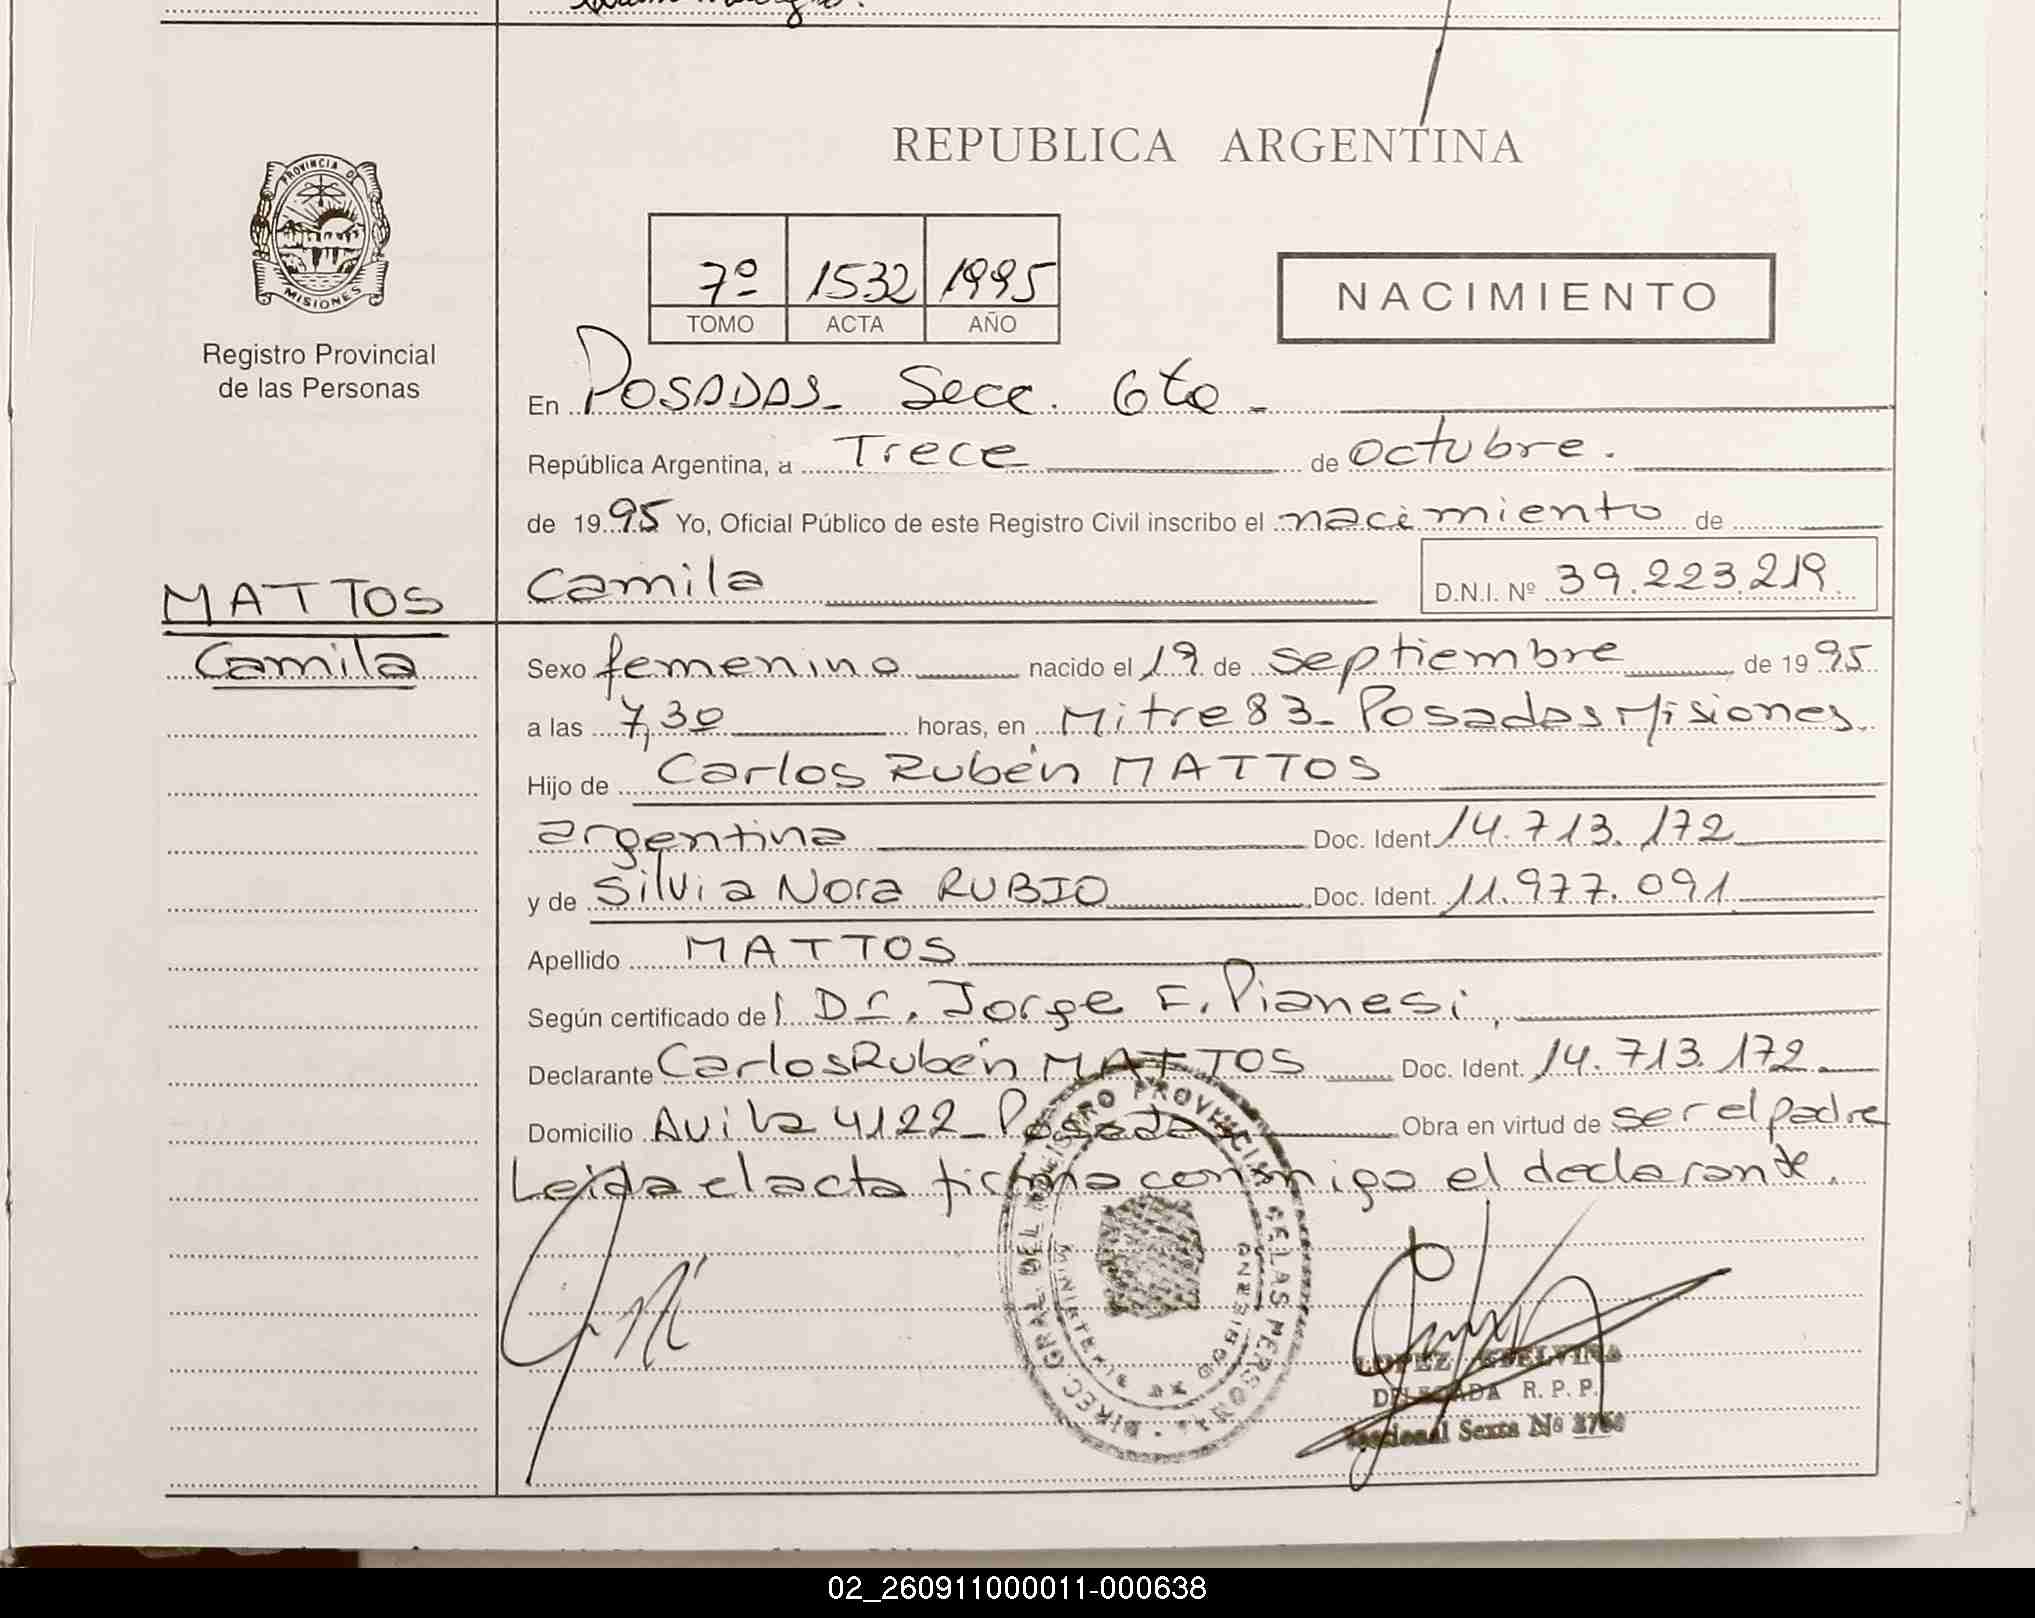 REPUBLICA ARGENTINA
PROVINCIA DE
MISIONES
Registro Provincial
de las Personas
7º 1532 1995
TOMO ACTA AÑO
NACIMIENTO
En POSADAS_ Secc. 6ta_
República Argentina, a Trece de octubre.
de 1995 Yo, Oficial Público de este Registro Civil inscribo el nacimiento de
Camila D.N.I. Nº 39.223.219
MATTOS
Camila
Sexo femenino nacido el 19 de septiembre de 1995
a las 7,30 horas, en Mitre 83_ Posadas Misiones.
Hijo de Carlos Rubén MATTOS
argentina Doc. Ident. 14.713.172
y de Silvia Nora RUBIO Doc. Ident. 11.977.091
Apellido MATTOS
Según certificado del Dr. Jorge F. Pianesi,
Declarante Carlos Rubén MATTOS Doc. Ident. 14.713.172
Domicilio Avila 4122_ Posadas Obra en virtud de ser el padre
Leida el acta firma conmigo el declarante.
DIREC. GRAL DEL REGISTRO PROVINCIAL DE LAS PERSONAS
MINISTERIO DE GOBIERNO
LOPEZ ETELVINA
DELEGADA R. P. P.
Seccional Sexta Nº
02_260911000011-000638